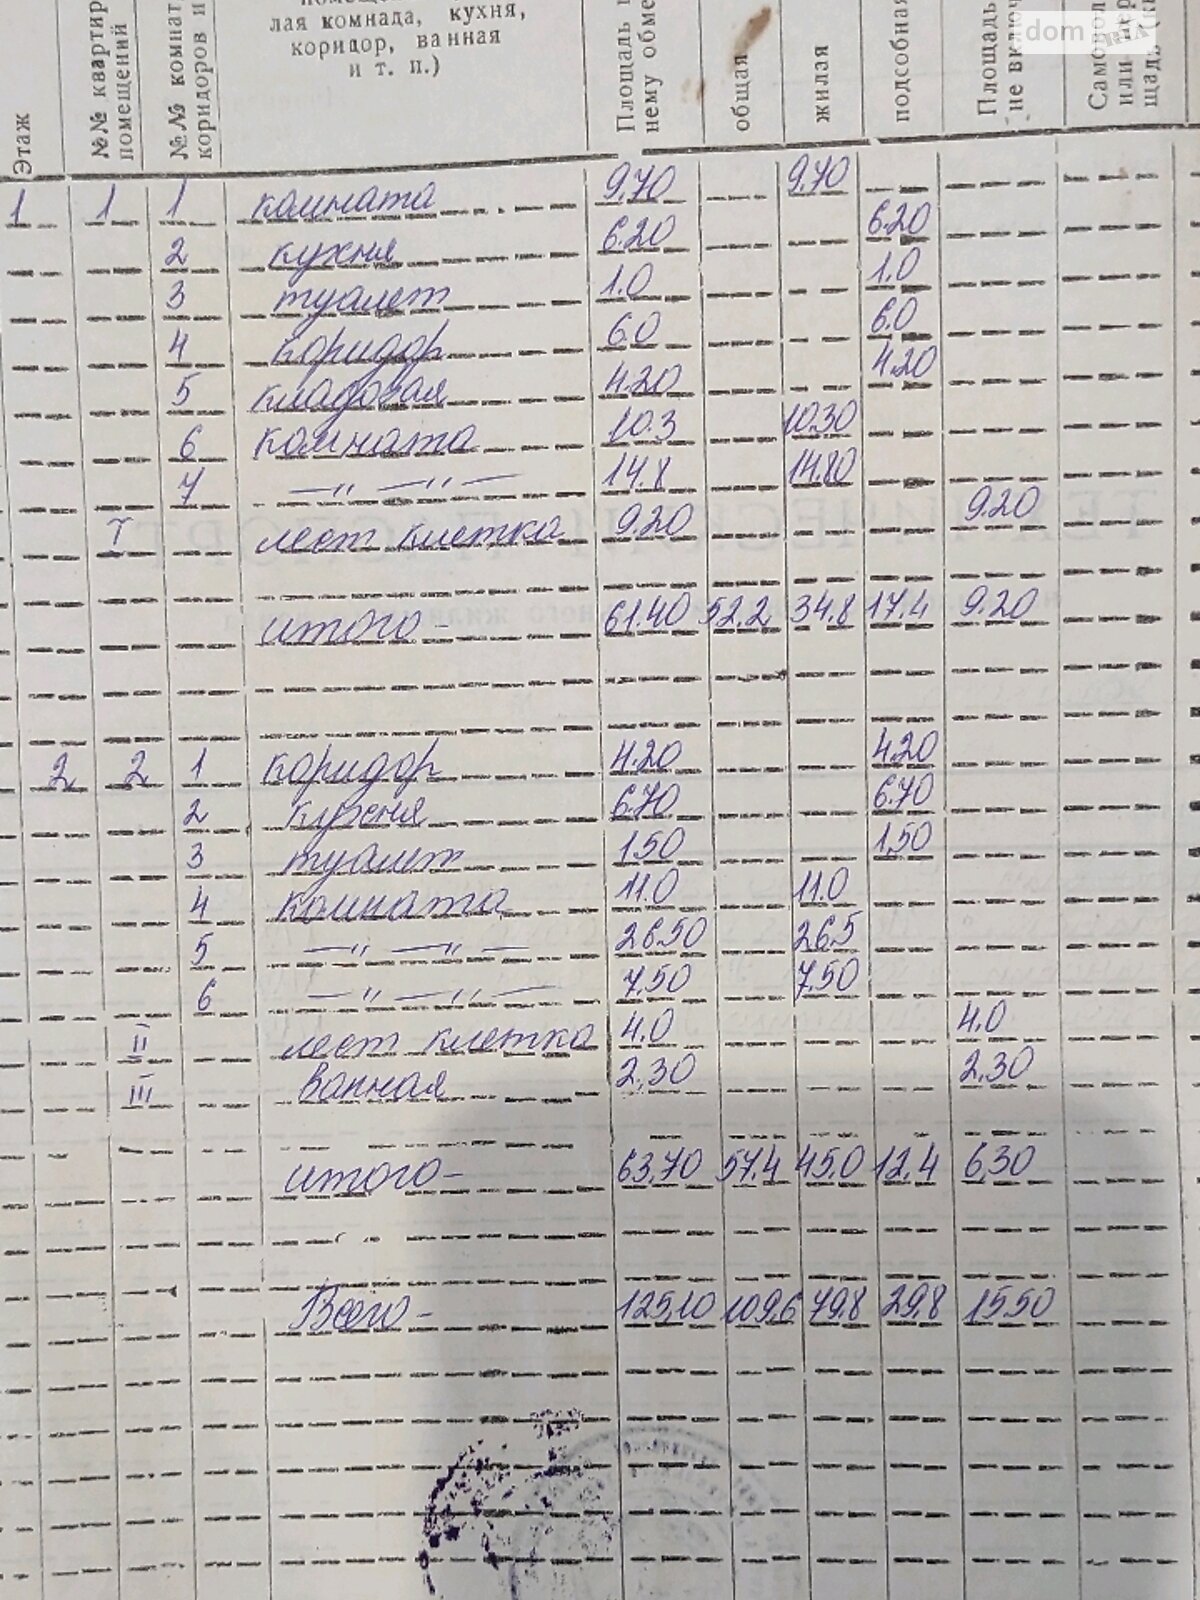 лая комнада, кухня,
коридор, ванная
и т. п.)
Этаж
№№ квартир
помещений
№№ комнат
коридоров и
Площадь
нему обме
общая
жилая
подсобная
Площадь
не включ
Самовол
или
щадь
dom RIA
1 1 1 комната 9.70 9.70
2 кухня 6.20 6.20
3 туалет 1.0 1.0
4 коридор 6.0 6.0
5 кладовая 4.20 4.20
6 комната 10.3 10.30
7 —〃—〃— 14.8 14.80
I лест клетка 9.20 9.20
итого - 61.40 52.2 34.8 17.4 9.20
2 2 1 коридор 4.20 4.20
2 кухня 6.70 6.70
3 туалет 1.50 1,50
4 комната 11.0 11.0
5 —〃—〃— 26.50 26.5
6 —〃—〃— 7.50 7.50
II лест клетка 4.0 4.0
III ванная 2,30 2,30
итого - 63,70 57.4 45.0 12,4 6,30
Всего - 125,10 109,6 79,8 29,8 15.50